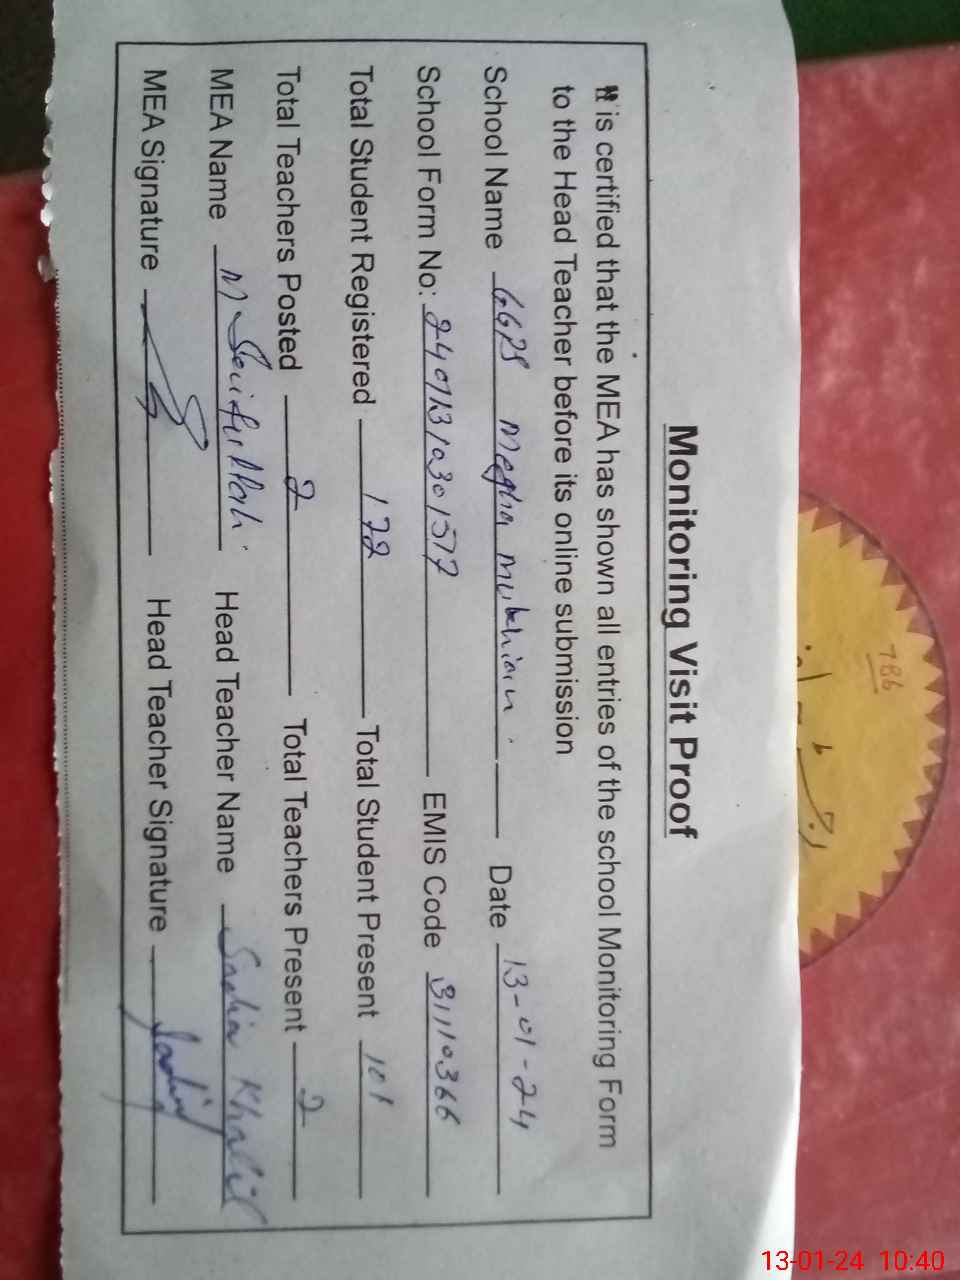 Monitoring Visit Proof
It is certified that the MEA has shown all entries of the school Monitoring Form
to the Head Teacher before its online submission
School Name GGPS Megha mubhiani Date 13-01-24
School Form No: 24011310301577 EMIS Code 31110366
Total Student Registered 172 Total Student Present 101
Total Teachers Posted 2 Total Teachers Present 2
MEA Name M Saifullah Head Teacher Name Sadia Khalil
MEA Signature Head Teacher Signature Sadia
786
13-01-24 10:40